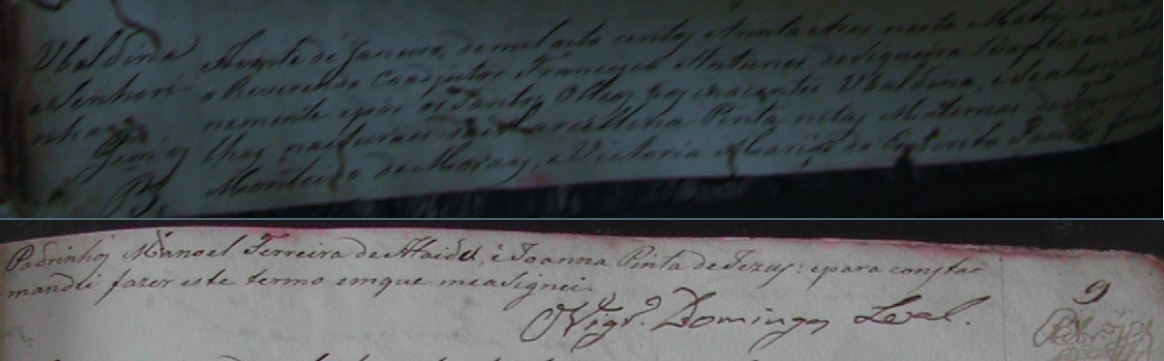 Ubaldina
eSenhori-
nha
Gemios
B.
Avinte de Janeiro, demil oito centos etrinta etres nesta Matriz
o Reverendo Coadjutor Francisco Antunes de Siqueira Baptizou
nemente epôz os Santos Oleos aos inocentes Ubaldina, eSenhorinha
lhas naturais de Marcellina Pinta, netas Maternas de Joam
Monteiro de Moraes, eVictoria Maria do Espirito Santo
Padrinhos Manoel Ferreira de Ataide, e Joanna Pinta de Jezus: epara constar
mandei fazer este termo emque measignei.
OVigr.º Domingos Leal.
9